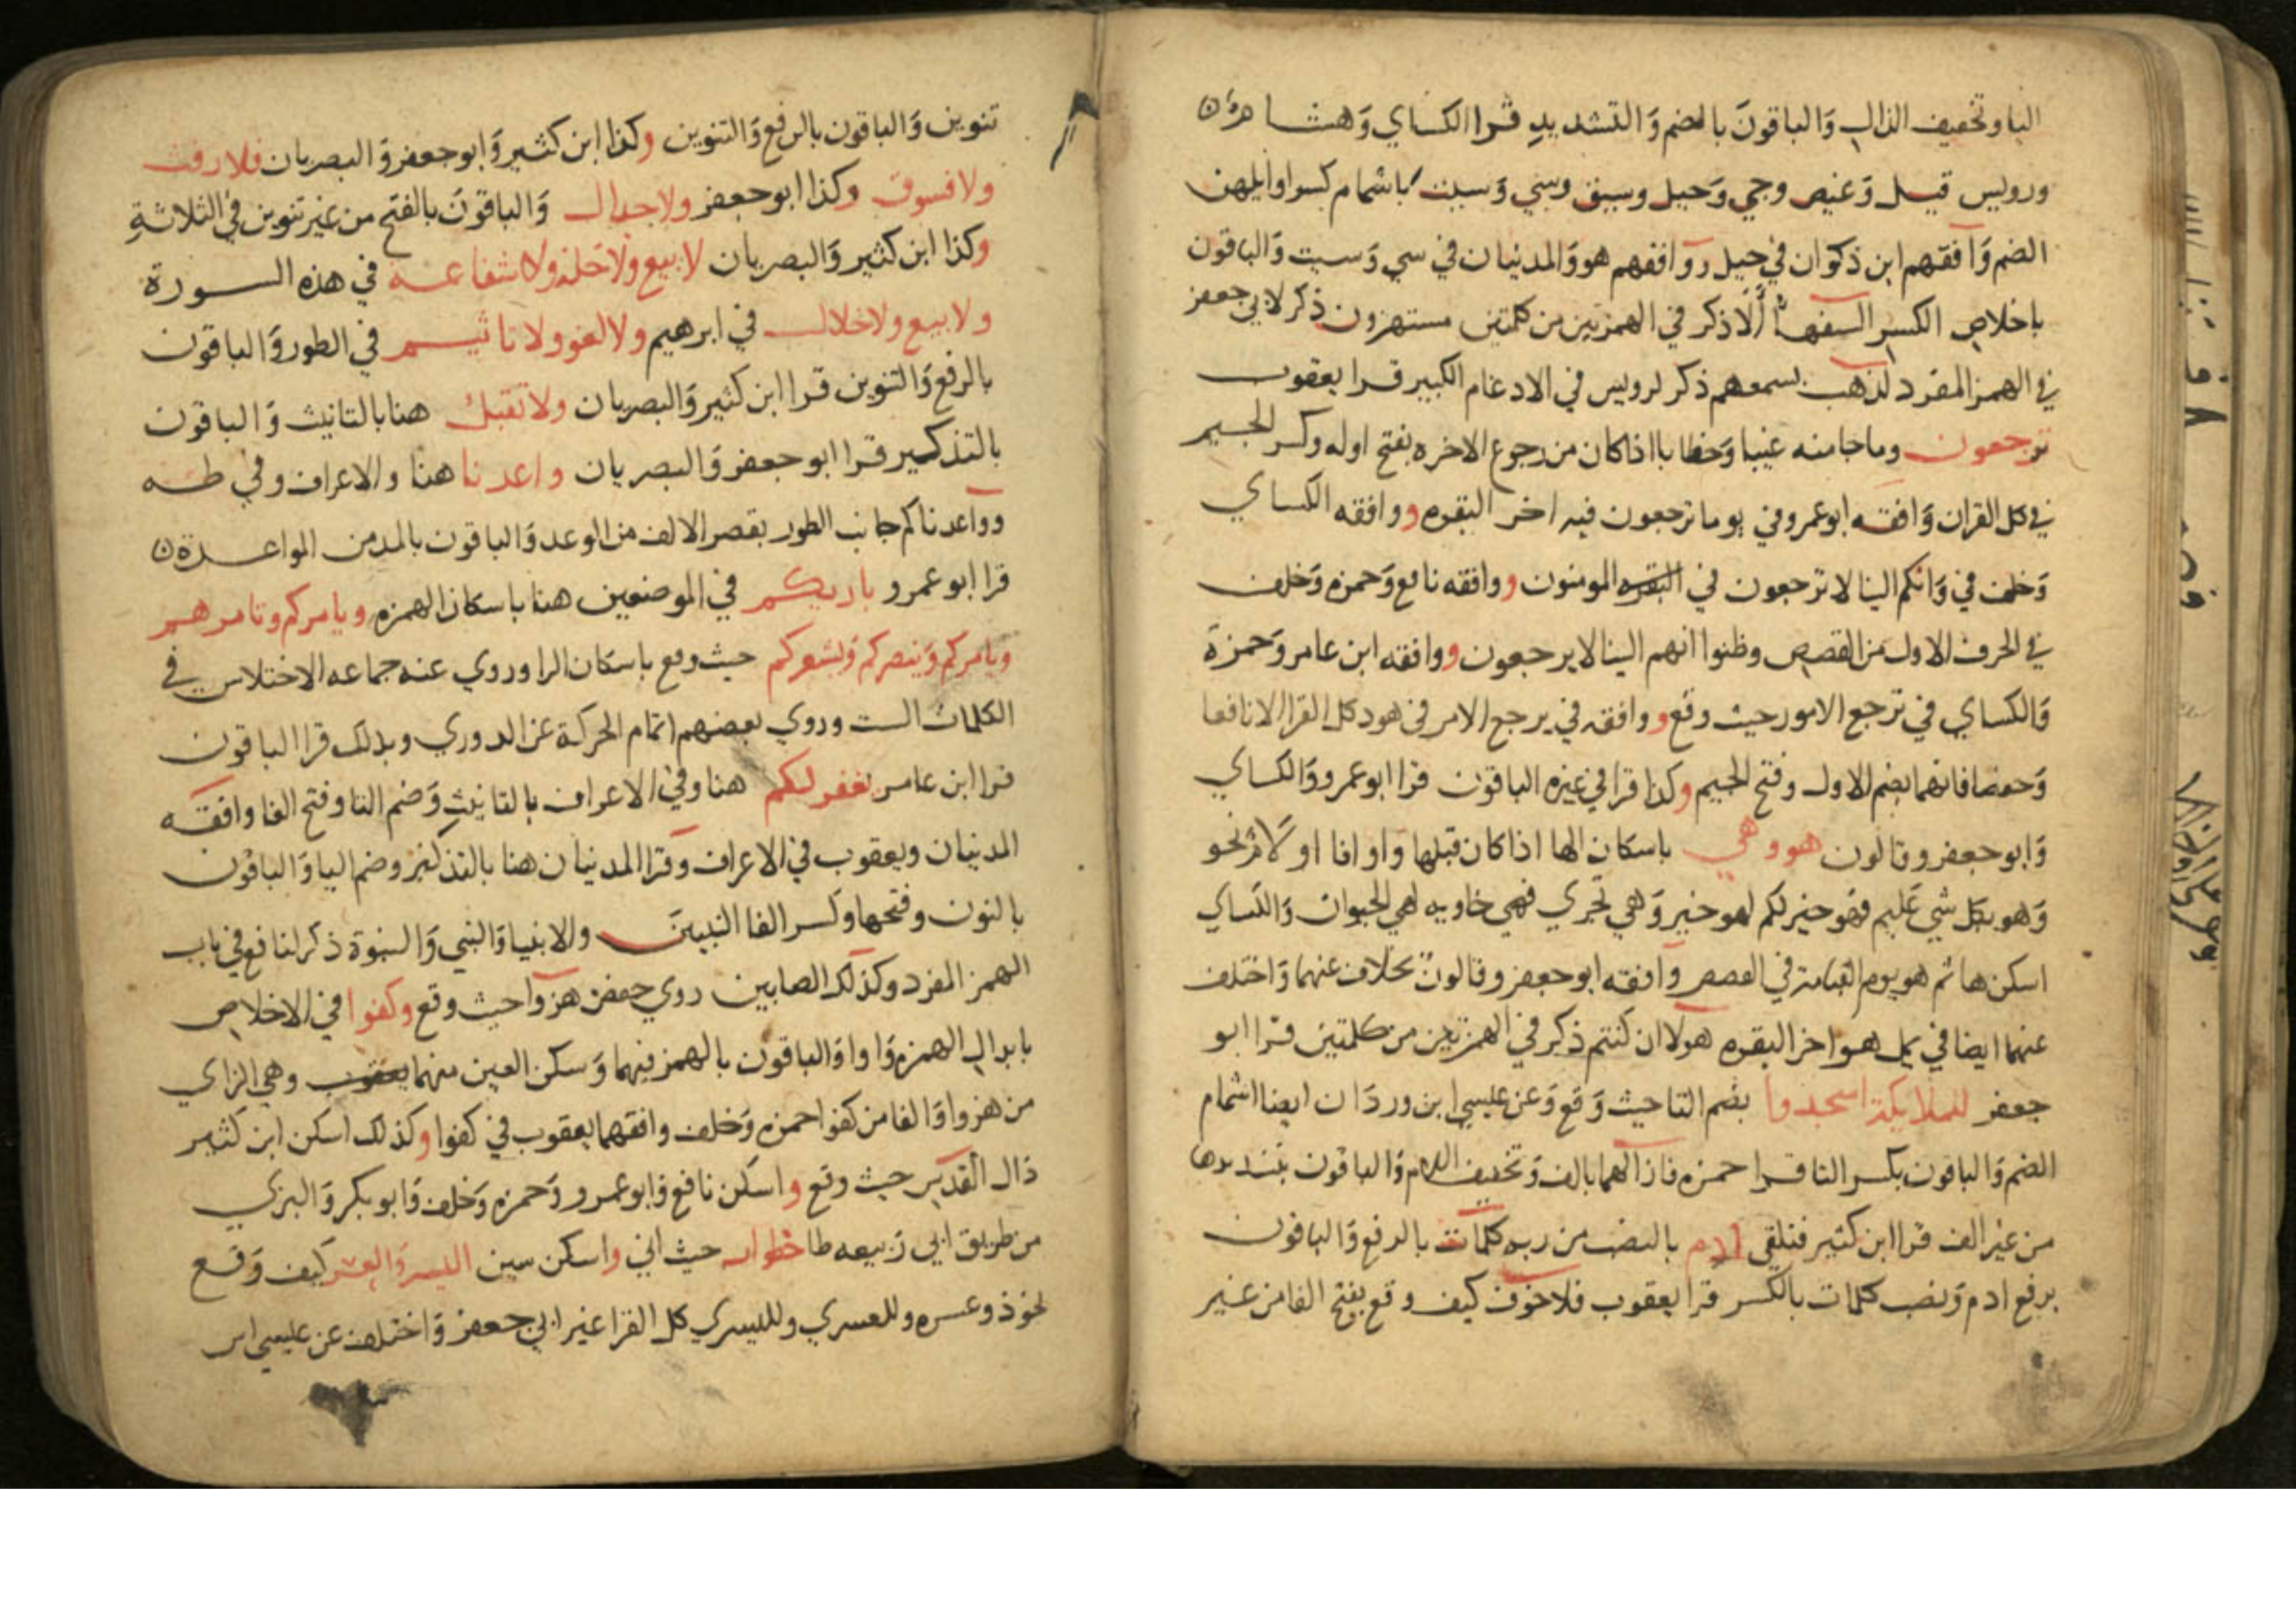 اليا وتخفيف الذال وَالباقونَ بالضم وَالتشديدِ قرا الكساي وَهشام
ورويس قيل وَغيض وجي وَحيل وسيق وسي وَسيت باشمام كسر اوايلهن
الضم وَافقهم ابن ذكوان في حيل ووافقهم هو وَالمدنيان في سي وَسيت وَالباقون
باخلاص الكسر السفهاُ أَلَا ذكر في الهمزتين من كلمتين مستهزون ذكر لابي جعفر
في الهمز المفرد لذهب بسمعهم ذكر لرويس في الادغام الكبير قرا يعقوب
ترجعون وما جا منه غيبا وَخطابا اذا كان من رجوع الاخره بفتح اوله وكسر الجيم
في كل القران وَافقه ابو عمرو في يوما ترجعون فيه اخر البقره ووافقه الكساي
وَخلف في وَانكم الينا لا ترجعون في البقره المومنون ووافقه نافع وَحمزه وَخلف
في الحرف الاول من القصص وظنوا انهم الينا لا يرجعون ووافقه ابن عامر وَحمزة
وَالكساي في ترجع الامور حيث وقع ووافقه في يرجع الامر في هود كل القرا الا نافعا
وَحفصا فانهما بضم الاول وفتح الجيم وكذا قرا في غيره الباقون قرا ابو عمرو وَالكساي
وَابو جعفر وقالون هو وهي باسكان الها اذا كان قبلها وَاو او فا او لَام نحو
وَهو بكل شي عَليم فهو خير لكم لهو خير وَهي تجري فهي خاويه لهي الحيوان وَالكساي
اسكن ها ثم هو يوم القيامة في القصص وَافقه ابو جعفر وقالون بخلاف عنهما وَاختلف
عنهما ايضا في يمل هو اخر البقره هولا ان كنتم ذكر في الهمزتين من كلمتين قرا ابو
جعفر للملايكة اسجدوا بضم التا حيث وَقع وَعن عيسي ابن وردَان ايضا اشمام
الضم وَالباقون بكسر التا قرا حمزه فازالهما بالف وَتخفيف اللام وَالباقون بتشديدها
من غير الف قرا ابن كثير فتلقى ادم بالنصب من ربه كلمات بالرفع وَالباقون
برفع ادم وَنصب كلمات بالكسر قرا يعقوب فلا خوف كيف وقع بفتح الفا من غير
تنوين وَالباقون بالرفع وَالتنوين وكذا ابن كثير وَابو جعفر وَالبصريان فلا رفث
ولا فسوق وكذا ابو جعفر ولا جدال وَالباقونَ بالفتح من غير تنوين في الثلاثةِ
وكذا ابن كثير وَالبصريان لا بيع ولا خلة ولا شفاعة في هذه السورة
ولا بيع ولا خلال في ابرهيم ولا لغو ولا تاثيم في الطور وَالباقون
بالرفع وَالتنوين قرا ابن كثير وَالبصريان ولا تقبل هنا بالتانيث وَالباقون
بالتذكير قرا ابو جعفر وَالبصريان واعدنا هنا والاعراف وفي طه
وواعدناكم جانب الطور بقصر الالف من الوعد وَالباقون بالمد من المواعدة
قرا ابو عمرو باريكم في الموضعين هنا باسكان الهمزه ويامركم وتامرهم
ويامركم وَينصركم وَيشعركم حيث وقع باسكان الرا وروي عنه جماعه الاختلاس في
الكلمات الست وروي بعضهم اتمام الحركة عن الدوري وبذلك قرا الباقون
قرا ابن عامر نغفر لكم هنا وفي الاعراف بالتانيث وَضم التا وفتح الفا وافقه
المدنيان ويعقوب في الاعراف وقرا المدنيان هنا بالتذكير وضم اليا وَالباقون
بالنون وفتحها وكسر الفا النبيين والانبيا وَالنبي وَالنبوة ذكر لنافع في باب
الهمز المفرد وكذلك الصابين روي حفص هزوا حيث وقع وكفوا في الاخلاص
بابدال الهمزه وَاوا وَالباقون بالهمز فيهما وَسكن العين منهما يعقوب وهي الزاي
من هزوا وَالفا من كفوا حمزه وَخلف وافقهما يعقوب في كفوا وكذلك اسكن ابن كثير
دَال القدس حيث وقع واسكن نافع وَابو عمرو وَحمزه وَخلف وَابو بكر وَالبزي
من طريق ابي رَبيعه طا خطوات حيث اتي واسكن سين اليسر وَالعسر كيف وَقع
نحو ذو عسره وللعسري ولليسري كل القرا غير ابي جعفر وَاختلف عن عيسي ابن